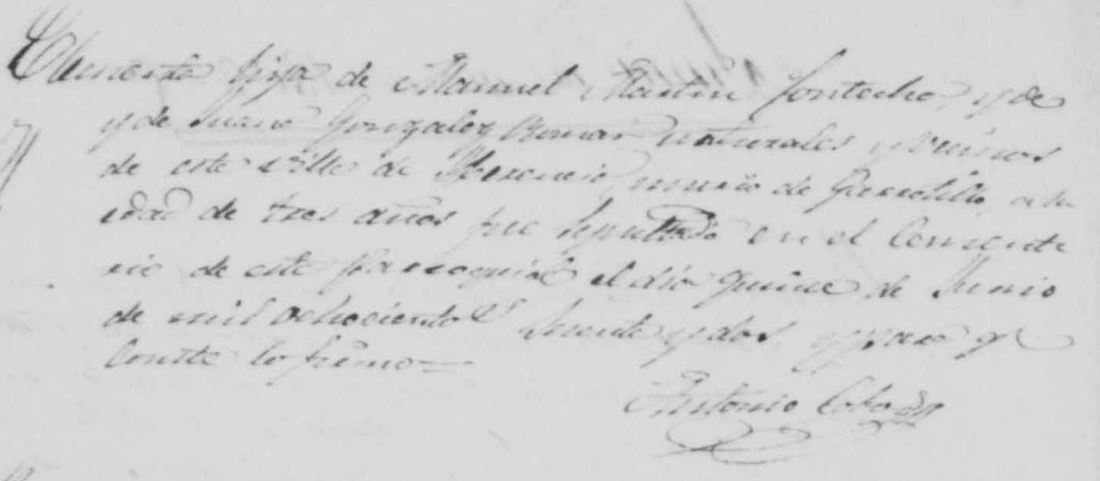 Clemente hija de Manuel Martin Fontecha, y de
y de Juana Gonzalez Roman naturales y vecinos
de esta Villa de Herencia, murió de Garrotillo, a la
edad de tres años fue Sepultada en el Cemente
rio de esta Parroquial el dia quince de Junio
de mil ochociento y dos, y para q
Conste lo firmo=
Antonio Cobo